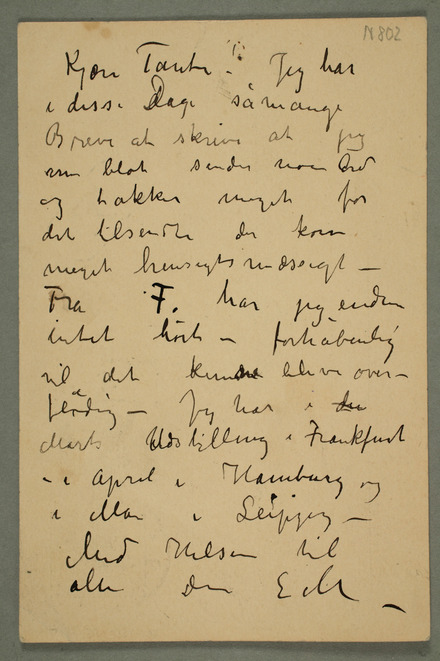 N 802
Kjære Tante – Jeg har
i disse Dage såmange
Breve at skrive at jeg
nu blot sender noen Ord
og takker meget for
det tilsendte der kom
meget hensigtsmæssigt –
Fra F. har jeg endnu
intet hört – forhåbentlig
vil det kunne blive over-
flødig – Jeg har i
Marts Udstilling i Frankfurt
– i April i Hamburg og
i Mai i Leipzig –
Med Hilsen til
alle Din E M –